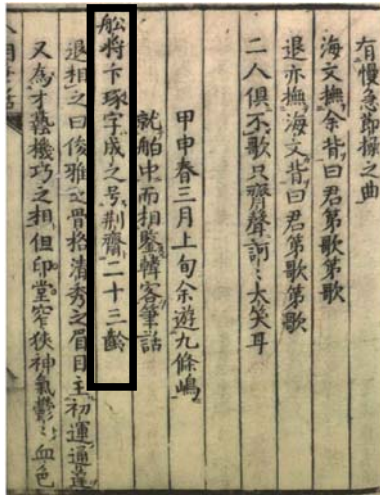 有慢急節操之曲
海文撫余背曰君第歌第歌
退亦撫海文背曰君第歌第歌
二人俱不歌只齊聲訶〻太笑耳
甲申春三月上旬余遊九條嶋
就舶中而相鑒韓客筆話
舩将卞琢字成之号荆齋二十三齡
退相之曰俊雅之骨格清秀之眉目主初運通達
又為才藝機巧之相但印堂窄狹神氣鬱〻血色